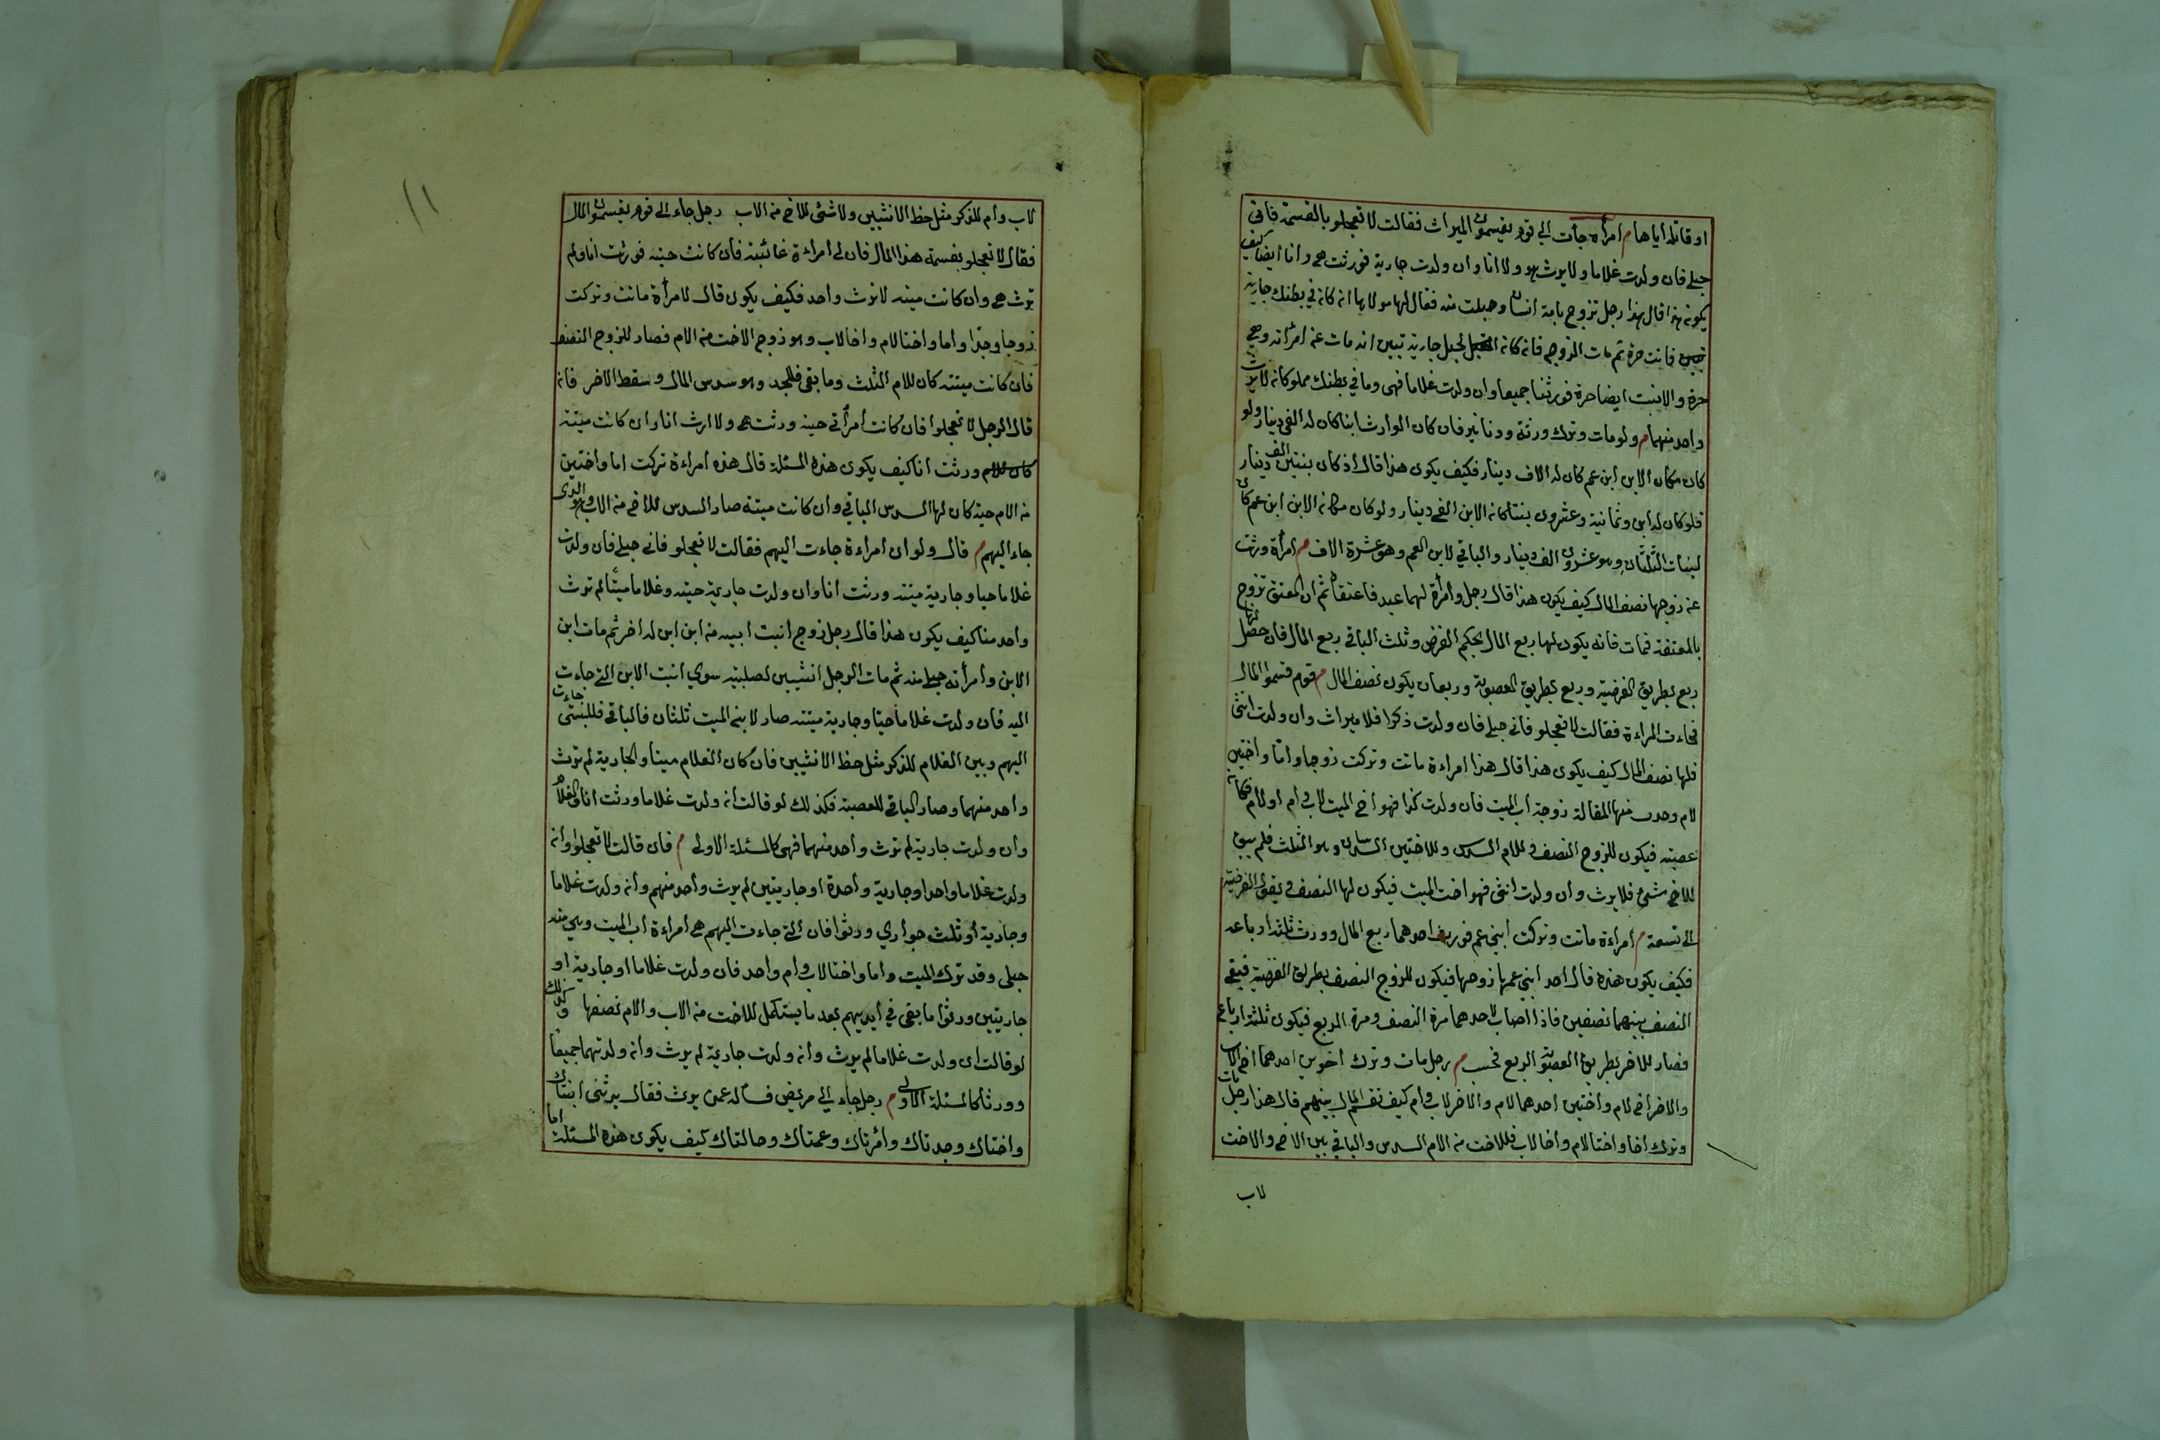 او قاتله اياها م امرأة جأت الي قوم يقسموا الميراث فقالت لا تعجلو بالقسمة فاني
حبلي فان ولدت غلاما ولا يرث هو ولا انا وان ولدت جارية فورثت هي وانا ايضا كيف
يكون هذا قال هذا رجل تزوج بامة انسا وحبلت منه فقال لها مولايها ان كان في بطنك جارية
فانت حرة ثم مات المتزوج فانه كان الحبل جارية تبين انه مات عن امرأته وهي
حرة والابنت ايضا حرة فورثتا جميعا وان ولدت غلاما فهى وما في بطنك مملوكان لا يرث
واحد منهما م ولو مات وترك ورثة ودنانير فان كان الوارث ابنا كان له الفى دينار ولو
كان مكان الابن ابن عم كان له الاف دينار فكيف يكون هذا قال اذ كان بنتين الف دينار
فلو كان له ابن وثمانية وعشرون بنتا كان الابن الفي دينار ولو كان مكان الابن ابن عم كان
لبنات الثلثان وهو عشرون الف دينار والباقي لابن العم وهو عشرة الاف م امرأة ورثت
عن زوجها نصف المال كيف يكون هذا قال رجل وامرأة لهما عبد فاعتقا ثم ان المعتق تزوج
بالمعتقة فمات فانه يكون لها ربع المال بحكم الفرض وثلث الباقي ربع المال فان حصل لها
ربع بطريق الفرضية وربع بطريق العصوبة وربعان يكون نصف المال م قوم قسموا المال
فجاءت المراءة فقالت لا تعجلو فاني حبلي فان ولدت ذكرا فلا ميراث وان ولدت انثى
فلها نصف المال كيف يكون هذا قال هذا امراءة ماتت وتركت زوجا واما واختين
لام وحدث منها المقالة زوجة اب الميت فان ولدت كذا فهو اخ الميت لاب وام او لام فكانه
عصبته فيكون للزوج النصف وللام السدس وللاختين السدسان وهو الثلث فلم يبق
للاخ شئ فلا يرث وان ولدت انثى فهو اخت الميت فيكون لها النصف في يعول الفرضية
الى تسعة م امراءة ماتت وتركت ابني عم فورث احدهما ربع المال وورث ثلثه ارباعه
فكيف يكون هذه قال احد ابني عمها زوجها فيكون للزوج النصف بطريق الفرضية فيبقي
النصف بينهما نصفين فاذا اصاب لاحدهما مرة النصف ومرة الربع فيكون ثلثه ارباع
فصار للاخر بطريق العصبة الربع فحسب م رجل مات وترك اخوين احدهما اخ لاب
والاخر اخ لام واختين احدهما لام والاخر لاب وام كيف تقسم المال بينهم قال هذا رجل مات
وترك اخا واختا لام واخا لاب فللاخت من الام السدس والباقي بين الاخ والاخت
لاب
١١
لاب وام للذكر مثل حظ الانثيين ولا شئ للاخ من الاب رجل جاء الى قوم يقسموا المال
فقال لا تعجلو بقسمة هذا المال فان لي امراءة غائبة فان كانت حية فورثت انا ولم
ترث هي وان كانت ميتة لا نرث واحد فكيف يكون قال لامرأة ماتت وتركت
زوجا وجدا واما واختا لام واخا لاب وهو زوج الاخت من الام فصار للزوج النصف
فان كانت ميتة كان للام الثلث وما بقى فللجد وهو سدس المال وسقط الاخر فان
قال الرجل لا تعجلوا فان كانت امرأتي حية ورثت هي ولا ارث انا وان كانت ميتة
كان للام ورثت انا كيف يكون هذه المسئلة قال هذه امراءة تركت اما واختين
من الام حية كان لها السدس الباقي وان كانت ميتة صار السدس للاخ من الاب وهو الذي
جاء اليهم م قال ولو ان امراءة جاءت اليهم فقالت لا تعجلو فاني حبلي فان ولدت
غلاما حيا وجارية ميتة ورثت انا وان ولدت جارية حية وغلاما ميتا لم ترث
واحد منا كيف يكون هذا قال رجل زوج ابنت ابيه من ابن ابن له اخر ثم مات ابن
الابن وامرأته حبلي منه ثم مات الرجل انثيين لصلبيته سوي ابنت الابن التي جاءت
اليه فان ولدت غلاما حيا وجارية ميتة صار لابنى الميت ثلثان فالباقي فللبنتى جاءت
اليهم وبين الغلام للذكر مثل حظ الانثيين فان كان الغلام ميتا والجارية لم ترث
واحد منهما وصار الباقي للعصبة فكذلك لو قالت انه ولدت غلاما ورثت انا والغلام
وان ولدت جارية لم ترث واحد منهما فهى كالمسئلة الاولى م فان قالت لا تعجلوا وانه
ولدت غلاما واحدا وجارية واحدة او جاريتين لم يرث واحد منهم وانه ولدت غلاما
وجارية او ثلث جواري ورثوا فان التي جاءت اليهم هي امراءة اب الميت وهي منه
حبلى وقد ترك الميت واما واختا لاب وام واحد فان ولدت غلاما او جارية او
جاريتين ورثوا ما بقى في ايديهم بعد ما يستكمل للاخت من الاب والام نصفها وكذلك
لو قالت ان ولدت غلاما لم يرث وانه ولدت جارية لم يرث وانه ولدتهما جميعا
وورثا كالمسئلة الاولى م رجل جاء الي مريض فساله عمن يرث فقال يرثنى ابنتاك
واختاك وجدتاك وامرأتاك وعمتاك وخالتاك كيف يكون هذه المسئلة اما